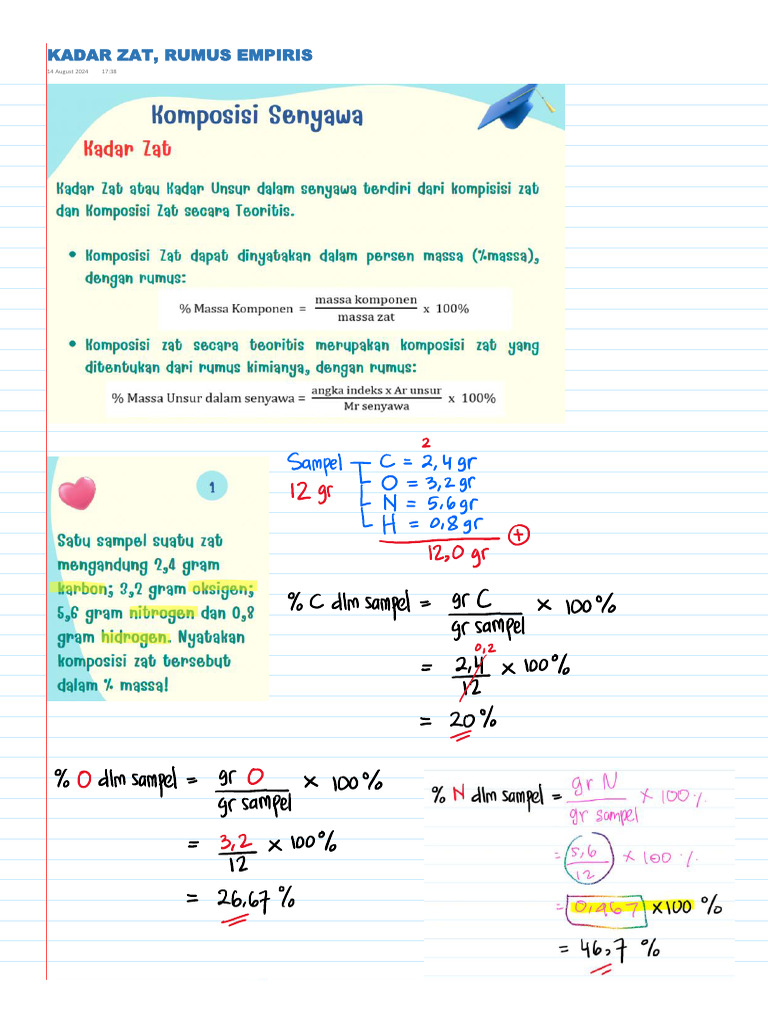 KADAR ZAT, RUMUS EMPIRIS
14 August 2024 17:38
Komposisi Senyawa
Kadar Zat
Kadar Zat atau Kadar Unsur dalam senyawa terdiri dari kompisisi zat
dan Komposisi Zat secara Teoritis.
• Komposisi Zat dapat dinyatakan dalam persen massa (%massa),
dengan rumus:
% Massa Komponen = massa komponen / massa zat x 100%
• Komposisi zat secara teoritis merupakan komposisi zat yang
ditentukan dari rumus kimianya, dengan rumus:
% Massa Unsur dalam senyawa = angka indeks x Ar unsur / Mr senyawa x 100%
1
Satu sampel suatu zat
mengandung 2,4 gram
karbon; 3,2 gram oksigen;
5,6 gram nitrogen dan 0,8
gram hidrogen. Nyatakan
komposisi zat tersebut
dalam % massa!
2
Sampel C = 2,4 gr
12 gr O = 3,2 gr
N = 5,6 gr
H = 0,8 gr
+
12,0 gr
% C dlm sampel = gr C / gr sampel × 100%
0,2
= 2,4 / 12 × 100%
= 20%
% O dlm sampel = gr O / gr sampel × 100%
= 3,2 / 12 × 100%
= 26,67 %
% N dlm sampel = gr N / gr sampel × 100%
= 5,6 / 12 × 100 %
= 0,467 ×100 %
= 46,7 %